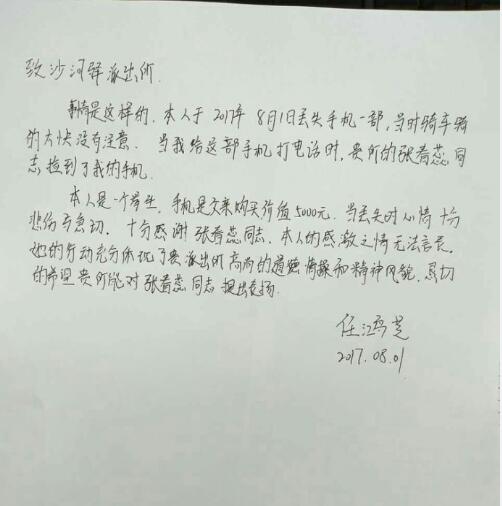 致沙河驿派出所.
事情是这样的. 本人于2017年8月1日丢失手机一部, 当时骑车骑
的太快没有注意. 当我给这部手机打电话时, 贵所的张春蕊同
志捡到了我的手机.
本人是一个学生, 手机是父亲购买价值5000元. 当丢失时心情十分
悲伤与急切. 十分感谢张春蕊同志. 本人的感激之情无法言表.
她的行动充分体现了贵派出所高尚的道德情操和精神风貌. 恳切
的希望贵所能对张春蕊同志提出表扬.
任鸿芝
2017.08.01